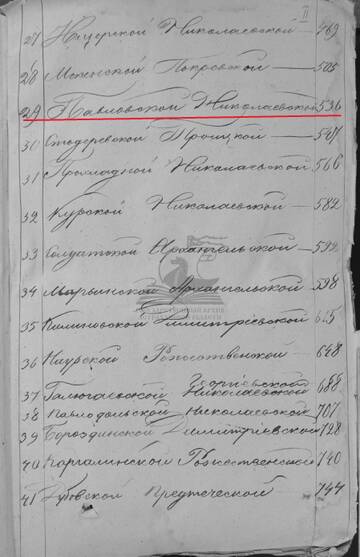 II
27 Ищерской Николаевской — 469
28 Мекенской Покровской — 505
29 Павловской Николаевской 536
30 Стодеревской Троицкой — 547
31 Прохладной Николаевской 566
32 Курской Николаевской — 582
33 Солдатской Архангельской — 592
34 Марьинской Архангельской 598
35 Калиновской Димитріевской 625
36 Наурской Рожественской — 648
37 Галюгаевской Георгіевской Николаевской 688
38 Павлодольской Николаевской 707
39 Бороздинской Димитріевской 728
40 Каргалинской Рожественской 740
41 Дубовской Предтеческой 744
ГОСУДАРСТВЕННЫЙ АРХИВ
ОБЛАСТИ